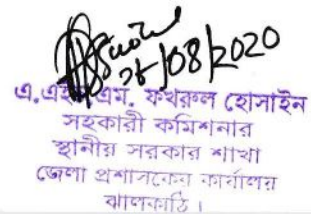 26/08/2020
এ.এইচ.এম. ফখরুল হোসাইন
সহকারী কমিশনার
স্থানীয় সরকার শাখা
জেলা প্রশাসকের কার্যালয়
ঝালকাঠি।